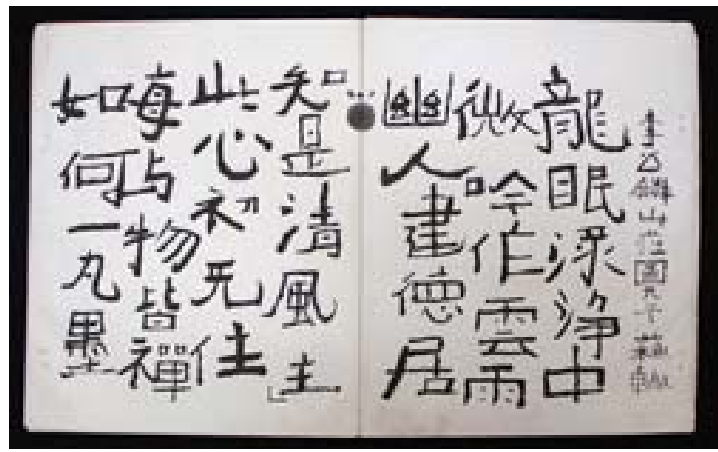 李公麟山莊圖
龍眠淥淨中
微吟作雲雨
幽人建德居
知是清風主
此心初无住
每与物皆禪
如何一丸墨